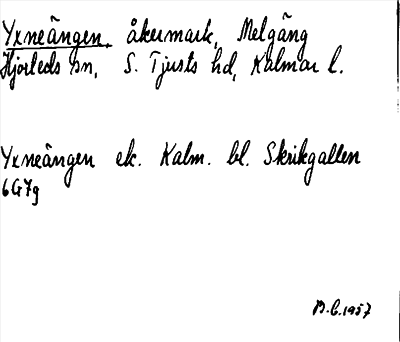 Yxneängen, åkermark, Melgäng
Hjorteds sn, S. Tjusts hd, Kalmar l.
Yxneängen ek. Kalm. bl. Skrikgallen
6G7g
B.G.1957